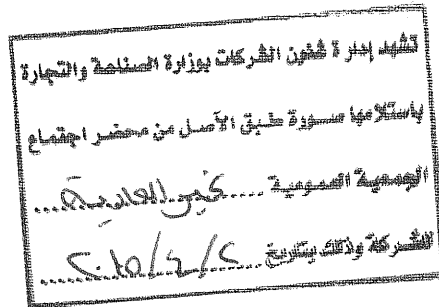 تشهد إدارة شئون الشركات بوزارة الصناعة والتجارة
باستلامها صورة طبق الأصل من محضر اجتماع
الجمعية العمومية .... غير العادية ....
للشركة وذلك بتاريخ .... ٢٠١٥/٤/٢ ....